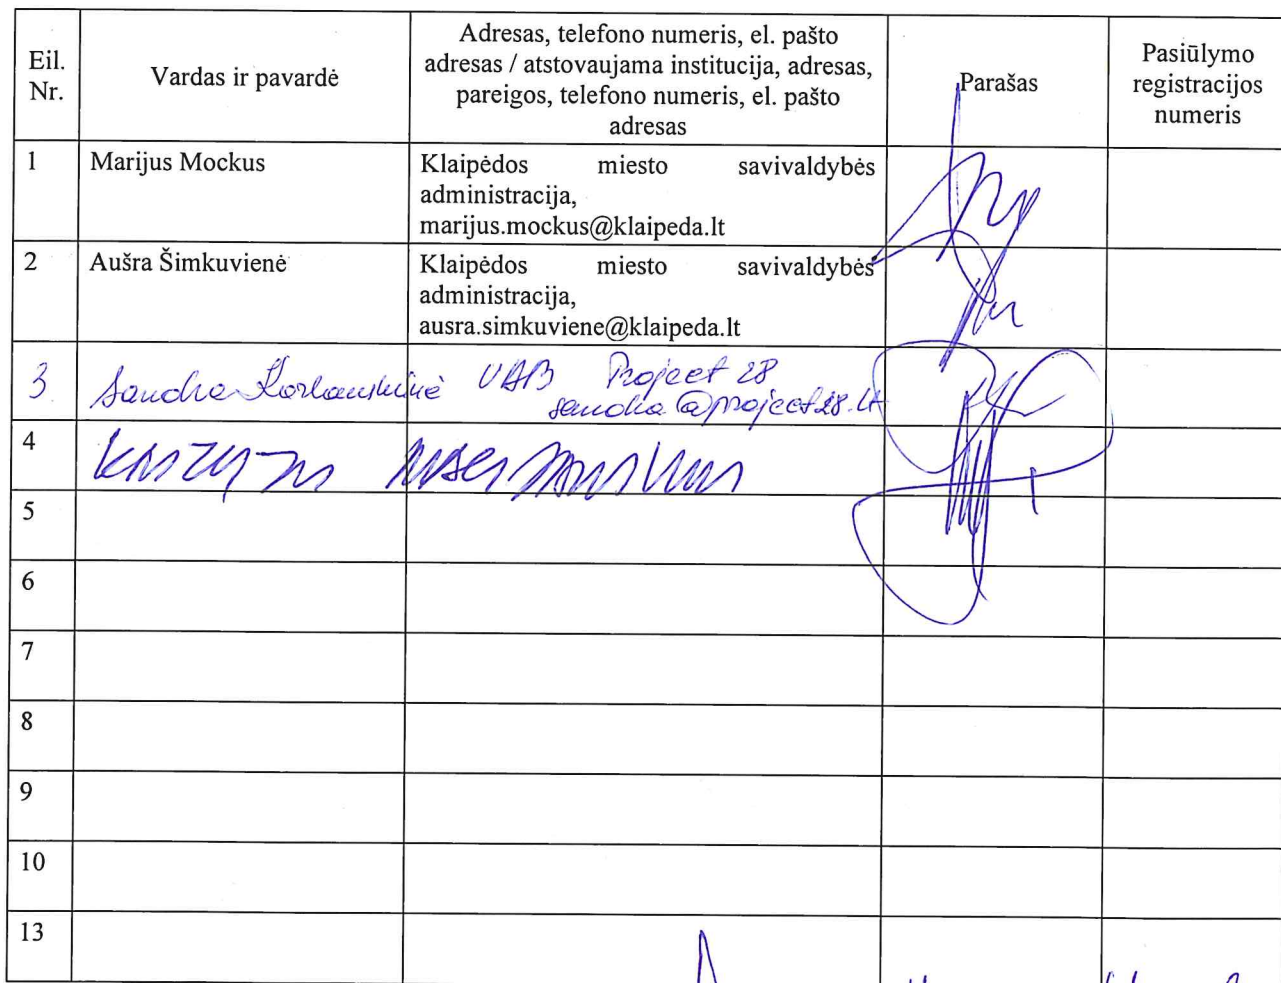 Eil. Nr.
Vardas ir pavardė
Adresas, telefono numeris, el. pašto
adresas / atstovaujama institucija, adresas,
pareigos, telefono numeris, el. pašto
adresas
Parašas
Pasiūlymo
registracijos
numeris
1
Marijus Mockus
Klaipėdos miesto savivaldybės
administracija,
marijus.mockus@klaipeda.lt
2
Aušra Šimkuvienė
Klaipėdos miesto savivaldybės
administracija,
ausra.simkuviene@klaipeda.lt
3
Sandra
UAB Project 28
sandra@project28.lt
4
5
6
7
8
9
10
13